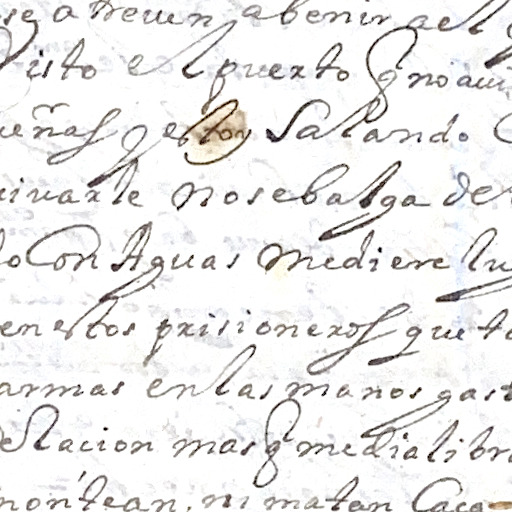 se atreven abenir ael
isto el puerto q no aui
ueñas q estoy Salando
iuarle no sebalga de
do Con Aguas mediere lu
en estos prisioneros que to
armas enlas manos gast
elacion mas q medialibr
montean, ni matan Caça